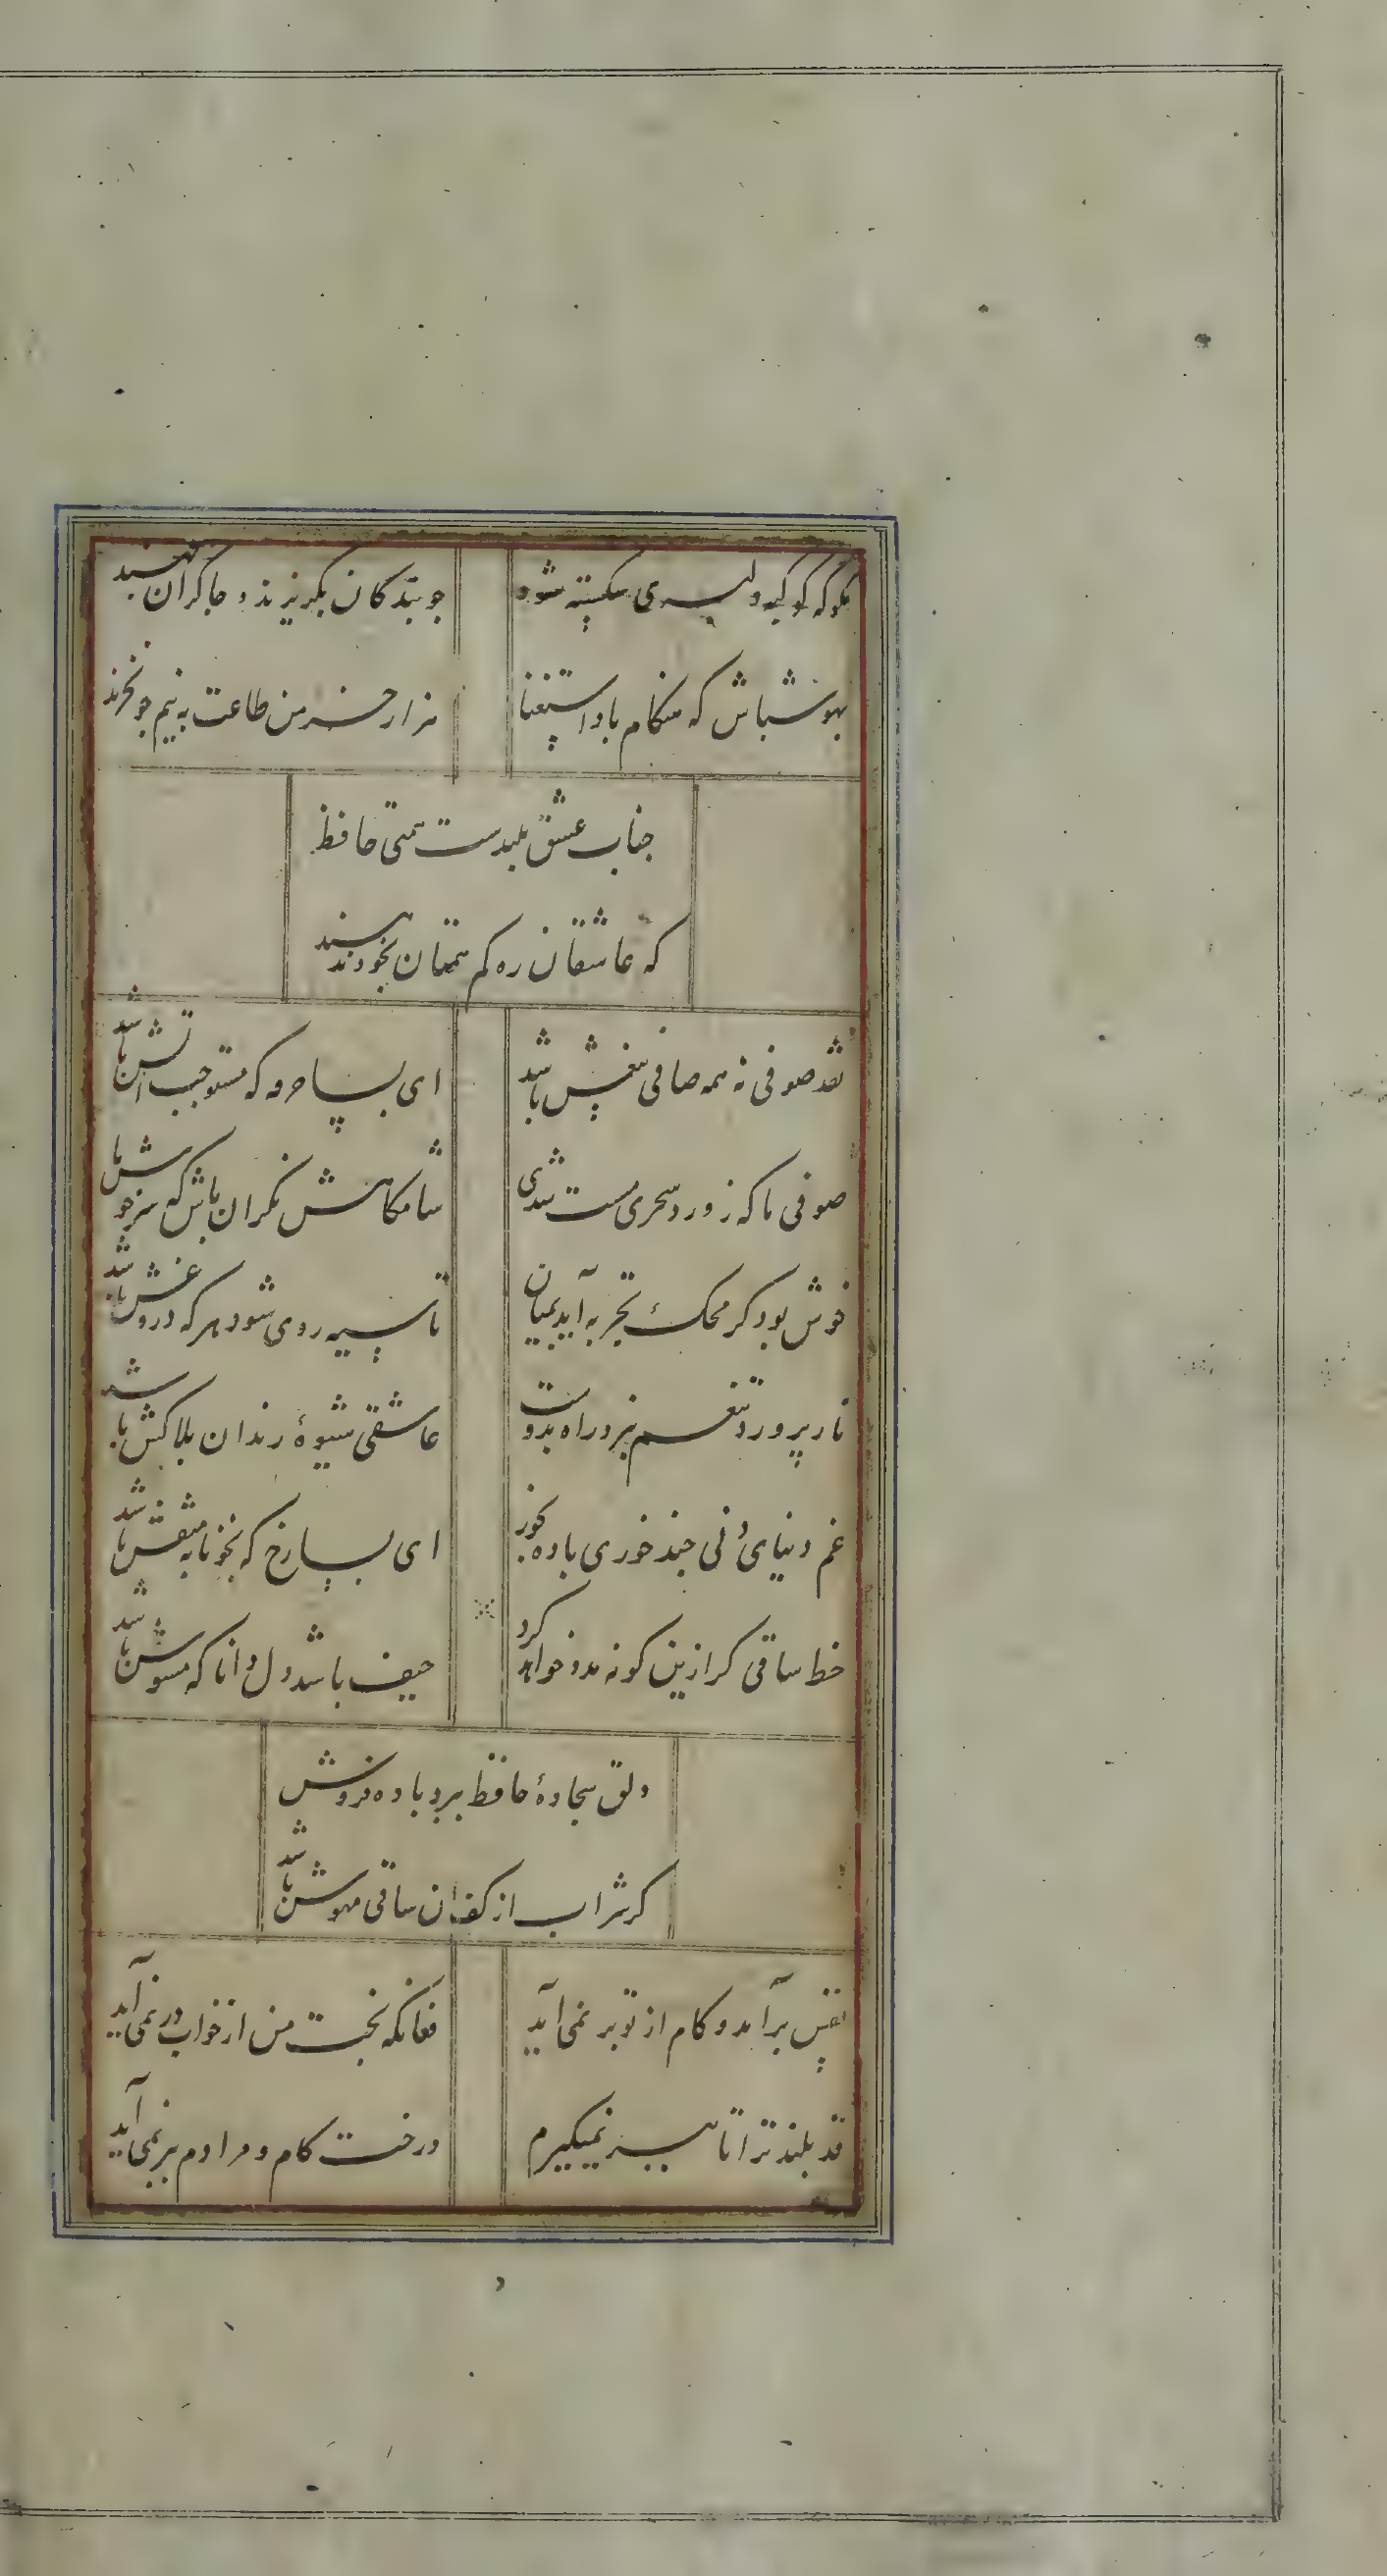 مکو که کوکبه دلبری شکسته شود
جو بندگان بگریزند و جاکران بجهند
بهوش باش که هنکام باد استغنا
هزار خرمن طاعت به نیم جو نخرند
جناب عشق بلندست همتی حافظ
که عاشقان ره کم همتان بخود ندهند
نقد صوفی نه همه صافی بیغش باشد
ای بسا خرقه که مستوجب آتش باشد
صوفی ما که ز ورد سحری مست شدی
شامکاهش نکران باش که سرخوش با
خوش بود کر محک تجربه آید بمیان
تا سیه روی شود هرکه دروغش باشد
ناز پرورد تنعم نبرد راه بدوست
عاشقی شیوهٔ رندان بلاکش باشد
غم دنیای دنی جند خوری باده بخور
ای بسا رخ که بخونابه منقش باشد
خط ساقی کر ازین کونه مدد خواهد کرد
حیف باشد دل دانا که مشوش باشد
دلق سجادهٔ حافظ ببرد باده فروش
کر شراب از کف آن ساقی مهوش باشد
نفس برآمد و کام از تو بر نمی آید
فغانکه بخت من از خواب در نمی آید
قد بلند ترا تا ببر نمیکیرم
درخت کام و مرادم ببر نمی آید